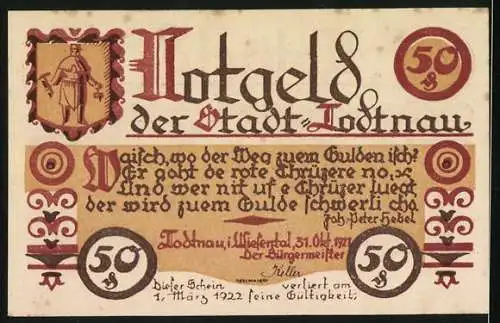 Notgeld
50 ₰
der Stadt Todtnau
Waisch, wo der Weg zuem Gulden isch?
Er goht de rote Chrüzere no,
Und wer nit uf e Chrüzer luegt
der wird zuem Gulde schwerli cho
Joh. Peter Hebel
Todtnau, i. Wiesental, 31. Okt. 1921
Der Bürgermeister
Keller
50 ₰
50 ₰
Dieser Schein verliert am
1. März 1922 seine Gültigkeit.